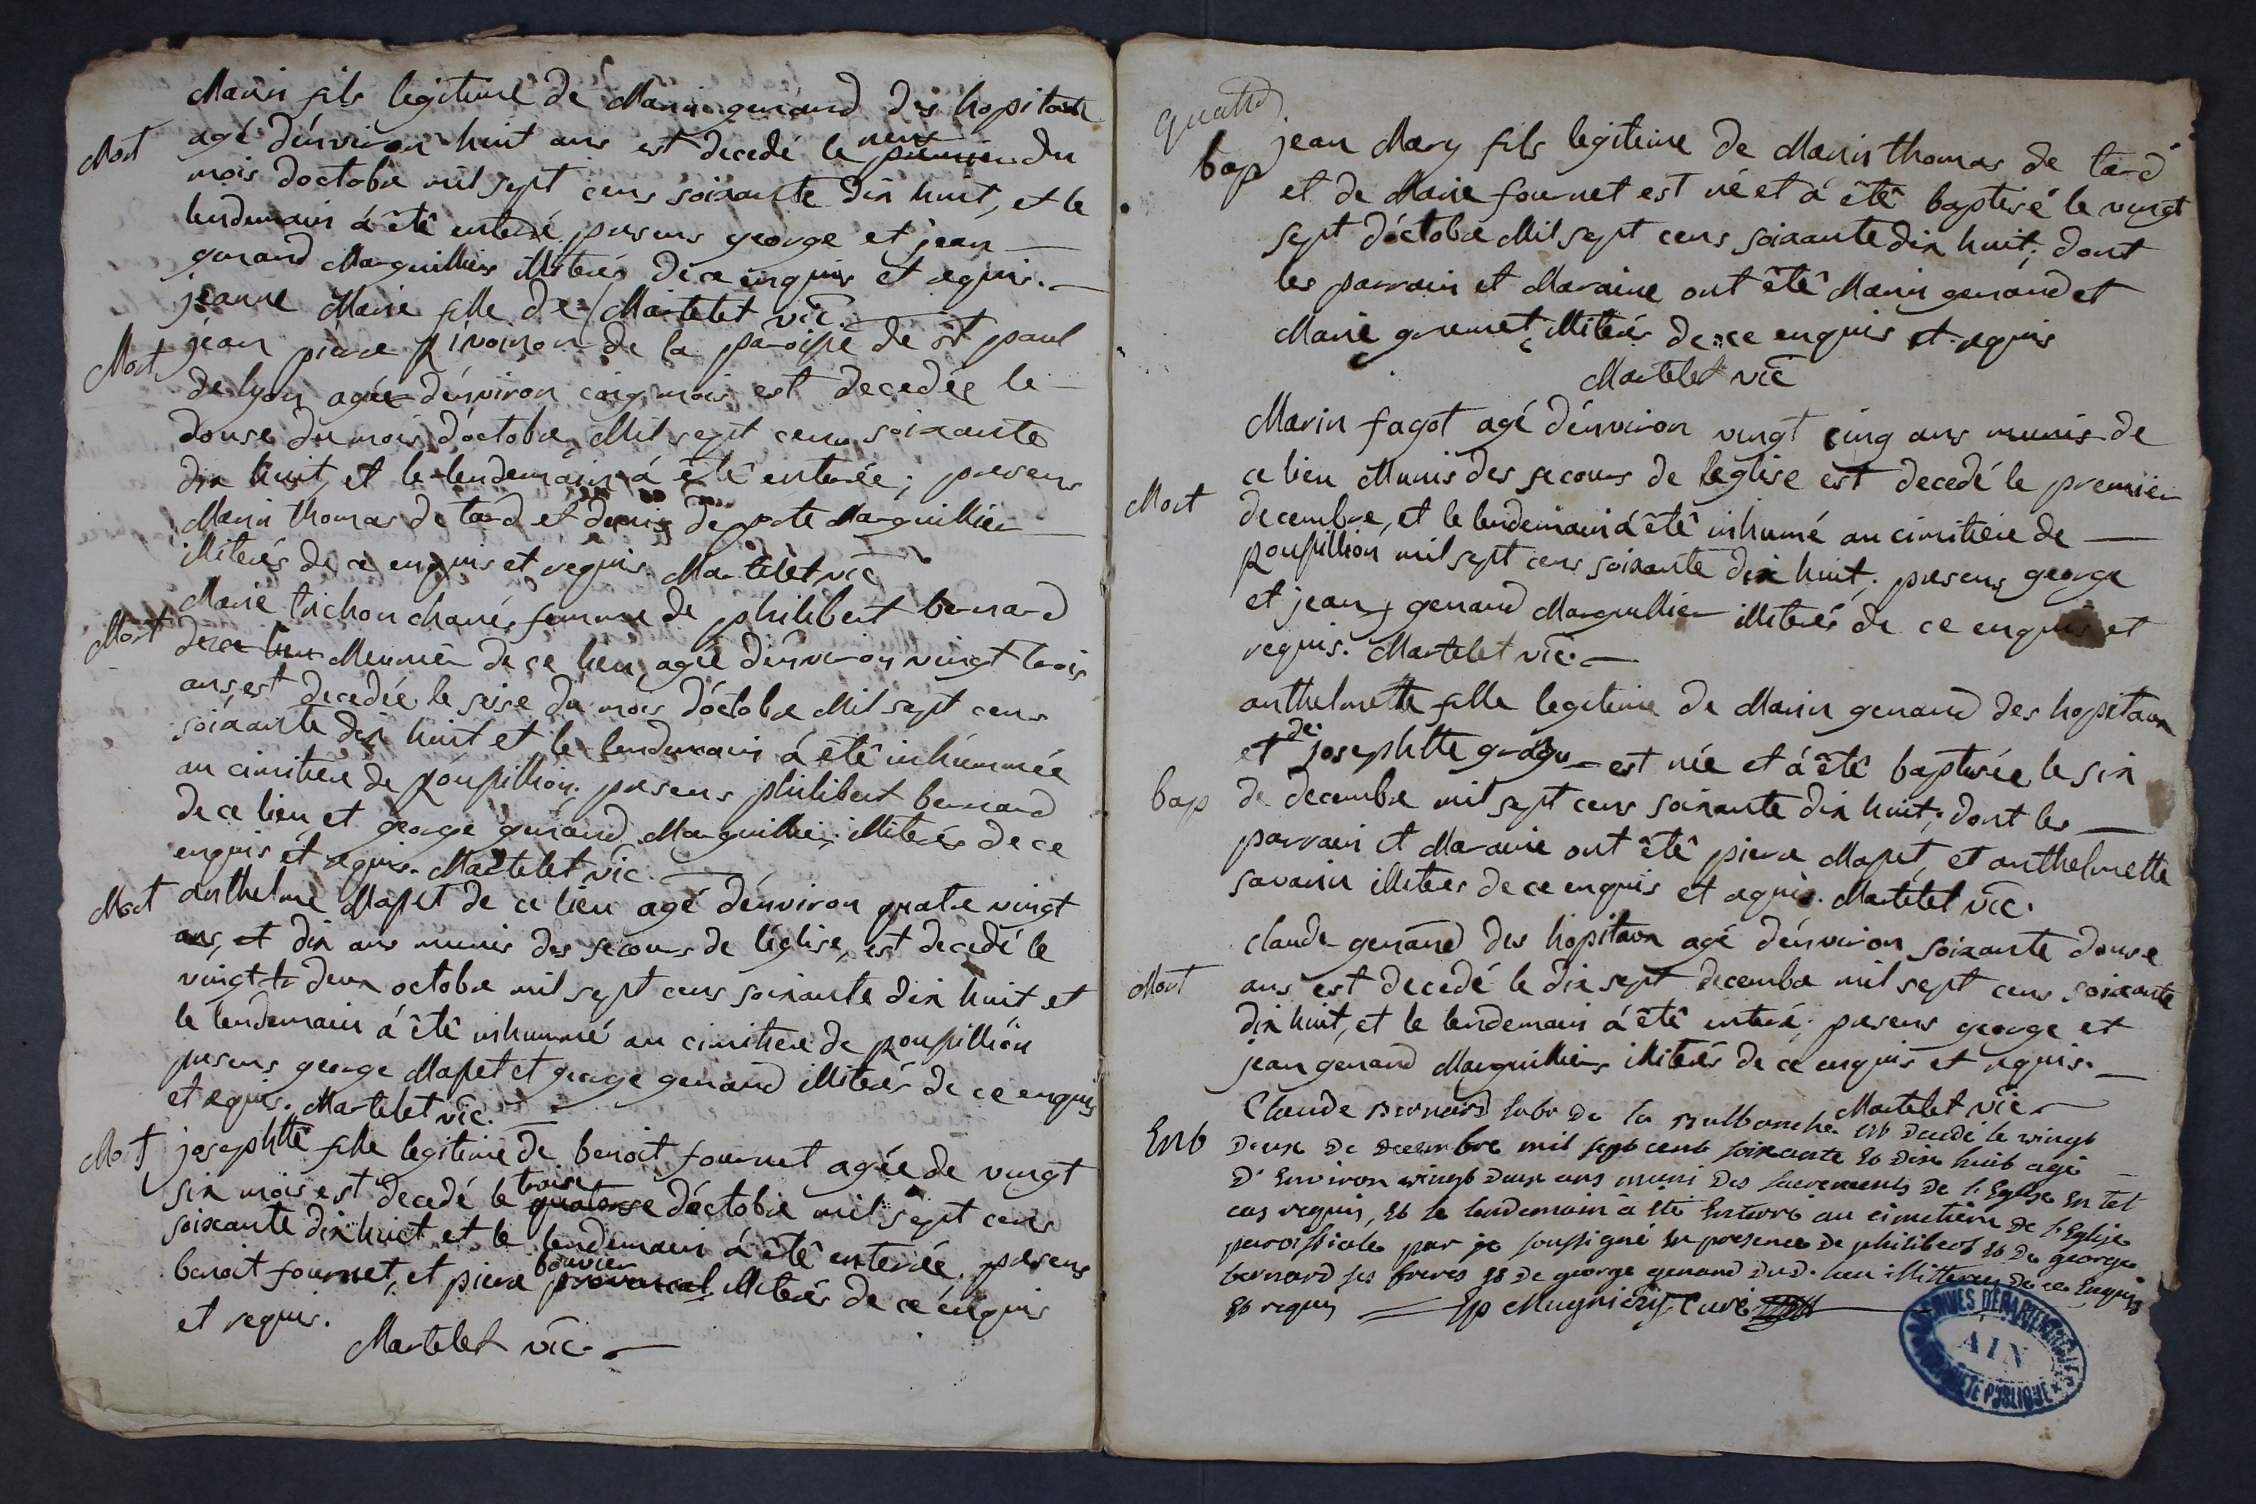 Marin fils legitime de Marin genand des hopitaux
Mort
agé d'énviron huit ans est decedé le neuf premier du
mois d'octobre mil sept cens soixante dix huit, et le
lendemain á êtê enterré, presens george et jean
genand Marguilliers illiterés de ce enquis et requis.
jeanne Marie fille de Martelet vic.
Mort
jean pierre pivoinon de la paroisse de st paul
de lyon agée d'énviron cinq mois est decedée le
douse du mois d'octobre Mil sept cens soixante
dix huit et le lendemain á êtê enterée; presens
Marin thomas de tard et denis de porte Marguillier
illiterés de ce enquis et requis. Martelet vic
Marie trichon charié femme de philibert bernard
Mort
de ce lieu Meunier de ce lieu, agée d'énviron vingt trois
ans, est decedée le seise du mois d'óctobre Mil sept cens
soixante dix huit et le lendemain á êtê inhummée
au cimitiere de poupillion; presens philibert bernard
de ce lieu, et george genand Marguillier, illiterés de ce
enquis et requis. Martelet vic.
Mort
anthelme Mapet de ce lieu agé d'énviron quatre vingt
ans, et dix ans munis des secours de l'église, est decedé le
vingt deux octobre mil sept cens soixante dix huit et
le lendemain á êtê inhummé au cimitiere de poupillión
presens george Mapet et george genand illiterés de ce enquis
et requis. Martelet vic.
Mort
josephtte fille legitime de benoit fournet agée de vingt
six mois est decedé le treise quatorse d'óctobre mil sept cens
soixante dix huict et le lendemain á êtê enterrée, presens
benoit fournet, et piere bouvier provencal illiterés de ce énquis
et requis.
Martelet vic.
quatre
bap
jean Mary fils legitime de Marin thomas de tard
et de Marie fournet est né et á êtê baptisé le vingt
sept d'óctobre Mil sept cens soixante dix huit; dont
les parrain et Maraine ont êtê Marin genand et
Marie grumet, illiterés de ce enquis et requis
Martelet vic
Marin fagot agé d'énviron vingt cinq ans munis de
ce lieu Munis des secours de leglise est decedé le premier
Mort
decembre, et le lendemain á êtê inhumé au cimitiére de
poupillion mil sept cens soixante dix huit; presens george
et jean genand Marguillier illiterés de ce enquis et
requis. Martelet vic.
anthelmette fille legitime de Marin genand des hopitaux
et de josephtte est née et á êtê baptisée le six
bap
de decembre mil sept cens soixante dix huit; dont les
parrain et Maraine ont êtê piere Mapet, et anthelmette
savarin illiterés de ce enquis et requis. Martelet vic.
claude genand des hopitaux agé d'énviron soixante douse
Mort
ans est decedé le dix sept decembre mil sept cens soixante
dix huit, et le lendemain á êtê enterré; presens george et
jean genand Marguilliers illiterés de ce enquis et requis.
Martelet vic.
Claude Bernard labr de la Bulbanche est decdé le vingt
Ent
deux de decembre mil sept cent soixante et dix huit agé
d'environ vingt deux ans muni des sacrements de l'Eglise en tel
cas requis, et le lendemain à été enterré au cimetiére de l'Eglise
paroissiale par je soussigné en presence de philibert et de george
bernard ses freres et de george genand dud. lieu illitterez de ce enquis
et requis jp Mugniery Curé
ARCHIVES DÉPARTEMENTALES
AIN
PROPRIÉTÉ PUBLIQUE